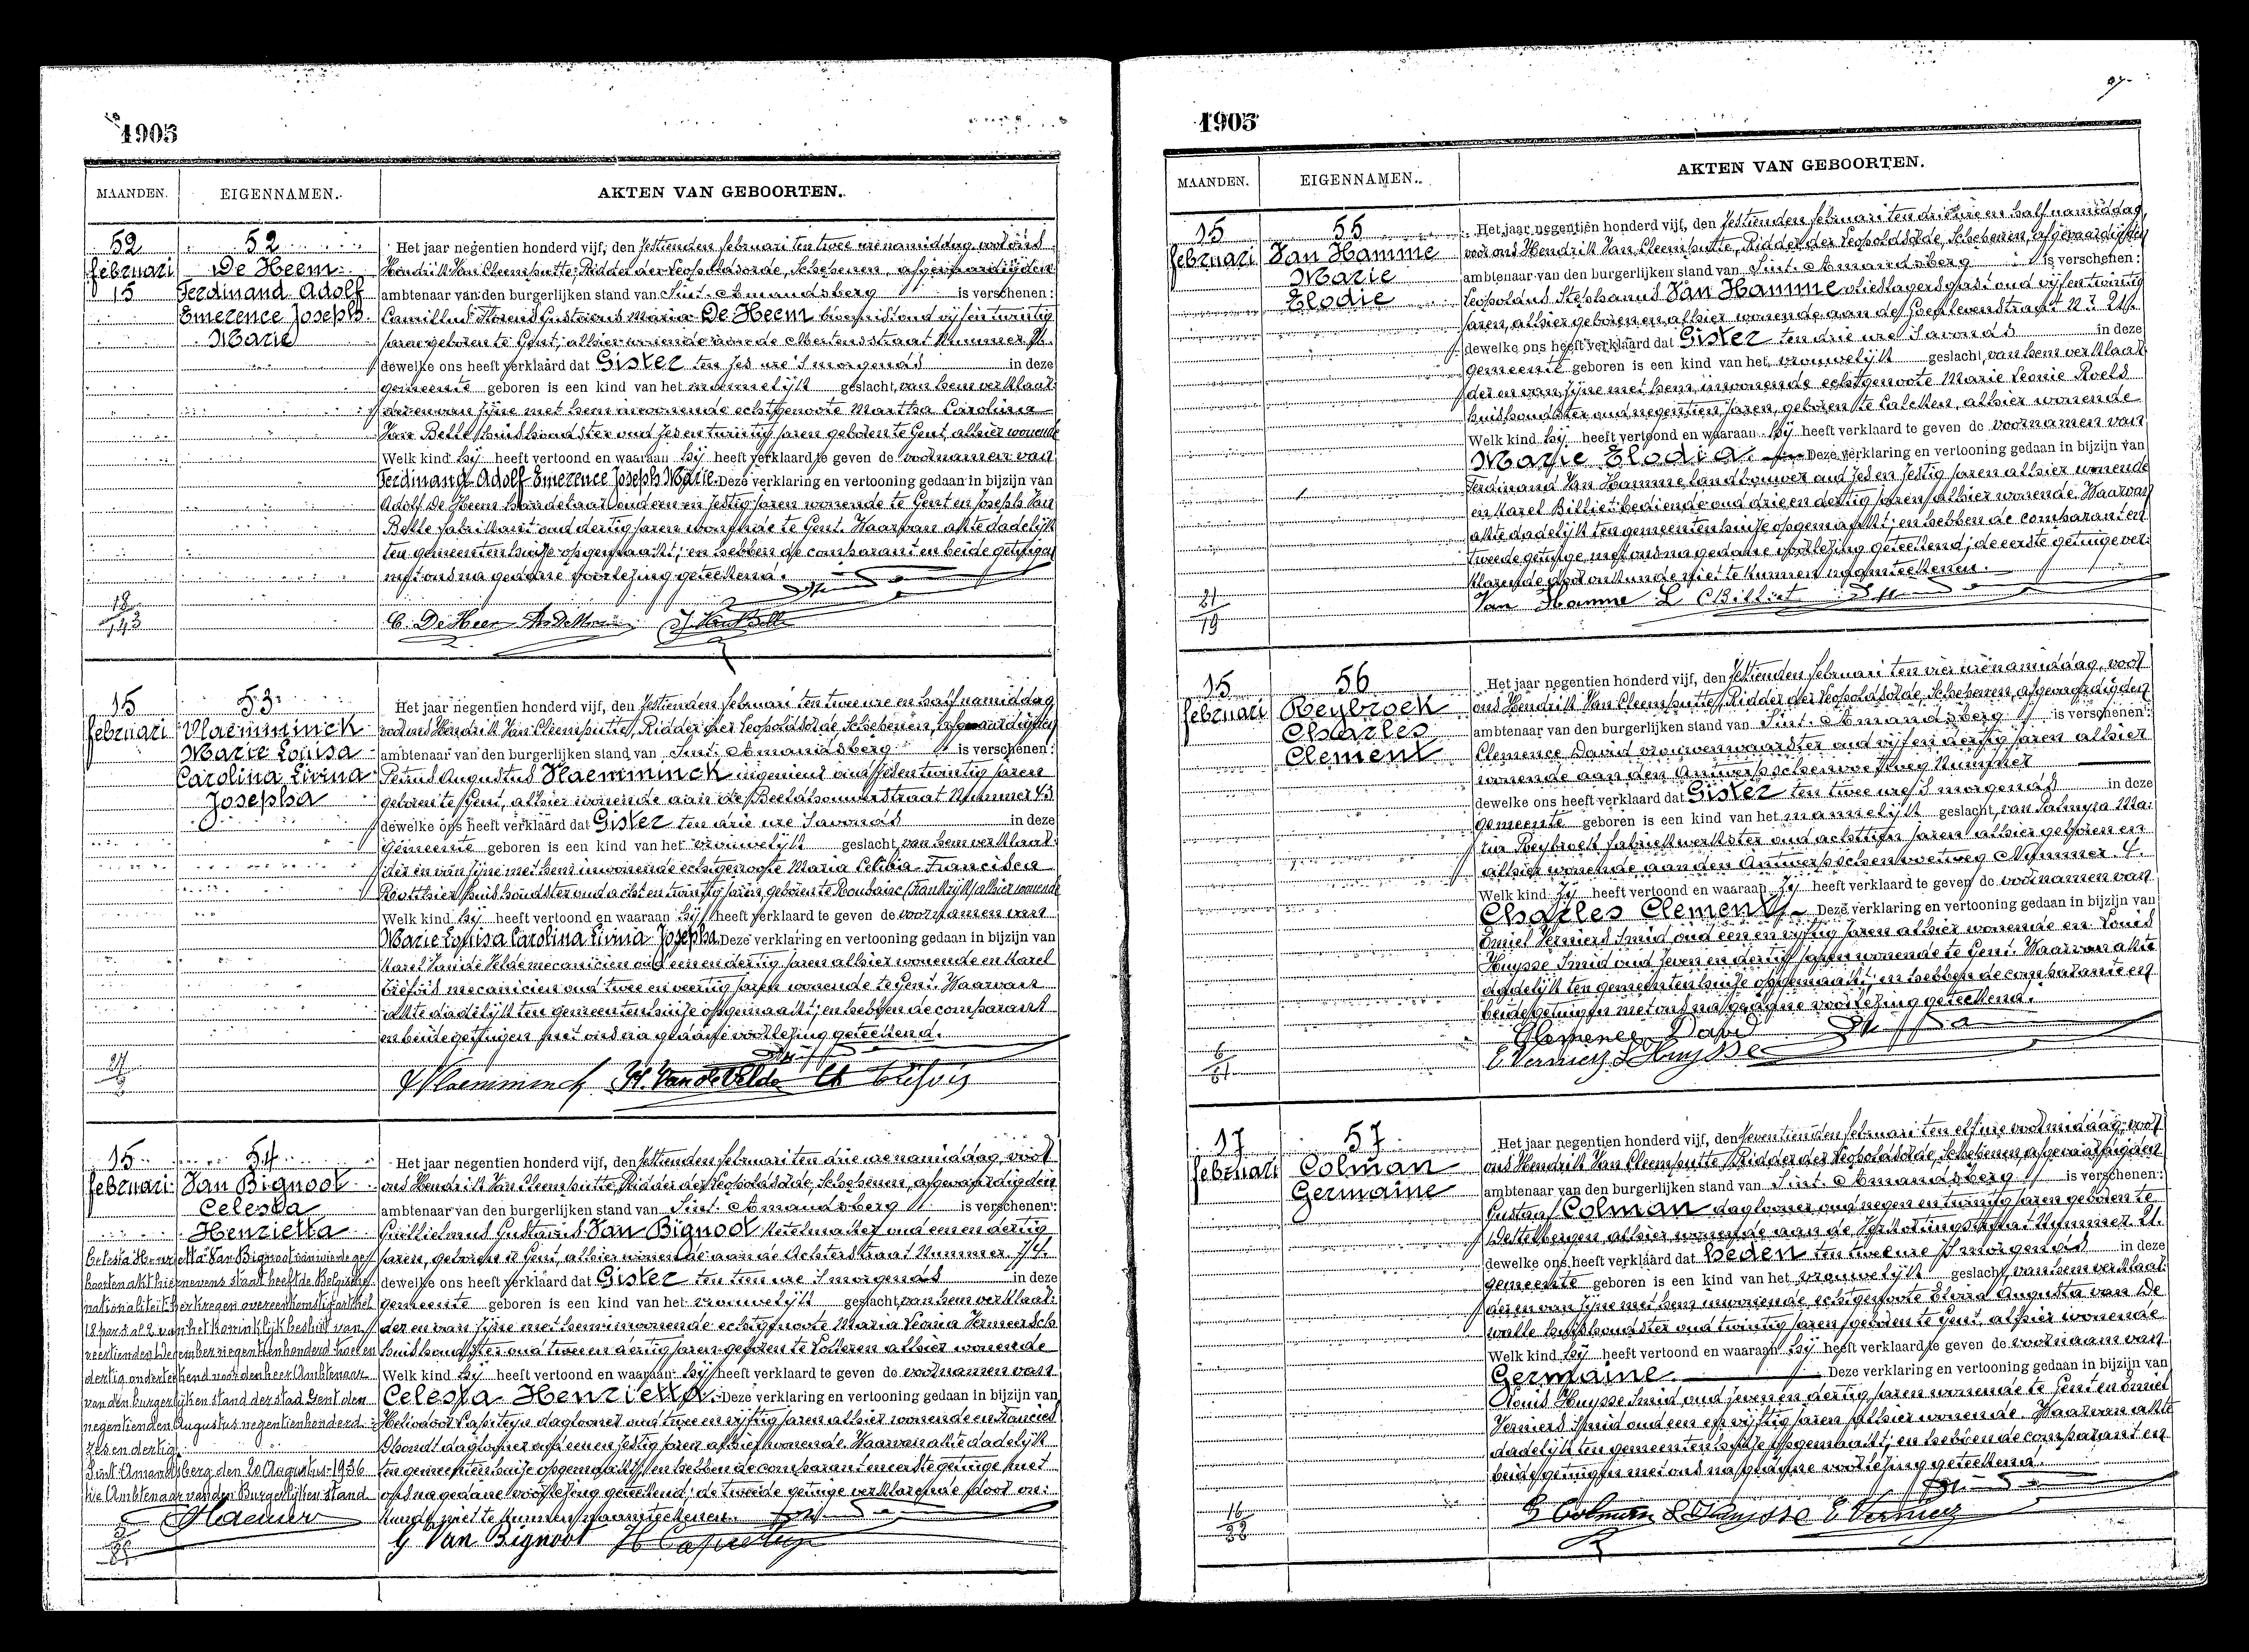 1905
MAANDEN. EIGENNAMEN. AKTEN VAN GEBOORTEN.
52 52 Het jaar negentien honderd vijf, den zestienden februari ten twee ure namiddag voor ons
februari De Heem Hendrik Van Cleemputte, Ridder der Leopoldsorde, Schepenen, afgevaardigden
15 Ferdinand Adolf ambtenaar van den burgerlijken stand van Sint-Amandsberg is verschenen:
Emerence Joseph Camillus Florens Gustavus Maria De Heem oud vijfentwintig
Marie jaren geboren te Gent, alhier wonende aan de straat Nummer
dewelke ons heeft verklaard dat Gister ten zes ure 's morgends in deze
gemeente geboren is een kind van het mannelijk geslacht, van hem verklaar-
der en van zijne met hem inwonende echtgenoote Martha Carolina
Van Belle huishoudster oud zes en twintig jaren geboren te Gent, alhier wonende
Welk kind hij heeft vertoond en waaraan hij heeft verklaard te geven de voornamen van
Ferdinand Adolf Emerence Joseph Marie. Deze verklaring en vertooning gedaan in bijzijn van
Adolf De Heem handelaar oud een en zestig jaren wonende te Gent en Joseph Van
Belle fabrikant oud dertig jaren wonende te Gent. Waarvan akte dadelijk
ten gemeentenhuize opgemaakt; en hebben de comparant en beide getuigen
met ons na gedane voorlezing geteekend.
C. De Heem J. Van Belle
15 53 Het jaar negentien honderd vijf, den zestienden februari ten twee ure en half namiddag
februari Vlaemminck voor ons Hendrik Van Cleemputte, Ridder der Leopoldsorde, Schepenen, afgevaardigden
Marie Louisa ambtenaar van den burgerlijken stand van Sint-Amandsberg is verschenen:
Carolina Livina Petrus Augustus Vlaemminck ingenieur oud zes en twintig jaren
Josepha geboren te Gent, alhier wonende aan de straat Nummer 43
dewelke ons heeft verklaard dat Gister ten drie ure 's avonds in deze
gemeente geboren is een kind van het vrouwelijk geslacht, van hem verklaar-
der en van zijne met hem inwonende echtgenoote Maria Celina Francisca
huishoudster oud acht en twintig jaren, geboren te Roubaix (Frankrijk) alhier wonende
Welk kind hij heeft vertoond en waaraan hij heeft verklaard te geven de voornamen van
Marie Louisa Carolina Livina Josepha. Deze verklaring en vertooning gedaan in bijzijn van
Karel Van de Velde mecanicien oud een en dertig jaren alhier wonende en Karel
mecanicien oud twee en veertig jaren wonende te Gent. Waarvan
akte dadelijk ten gemeentenhuize opgemaakt; en hebben de comparant
en beide getuigen met ons na gedane voorlezing geteekend.
Vlaemminck K. Van de Velde
15 54 Het jaar negentien honderd vijf, den zestienden februari ten drie ure namiddag, voor
februari Van Bignoot ons Hendrik Van Cleemputte, Ridder der Leopoldsorde, Schepenen, afgevaardigden
Celesta ambtenaar van den burgerlijken stand van Sint-Amandsberg is verschenen:
Henrietta Guillielmus Gustavus Van Bignoot ketelmaker oud een en dertig
jaren, geboren te Gent, alhier wonende aan de Achterstraat Nummer
dewelke ons heeft verklaard dat Gister ten tien ure 's morgends in deze
gemeente geboren is een kind van het vrouwelijk geslacht, van hem verklaar-
der en van zijne met hem inwonende echtgenoote Maria Leonia Vermeersch
huishoudster oud twee en dertig jaren geboren te Lotteren alhier wonende
Welk kind hij heeft vertoond en waaraan hij heeft verklaard te geven de voornamen van
Celesta Henrietta. Deze verklaring en vertooning gedaan in bijzijn van
Heliodoor Capiteyn daglooner oud twee en vijftig jaren alhier wonende en Francies
D'hondt daglooner oud een en zestig jaren alhier wonende. Waarvan akte dadelijk
ten gemeentenhuize opgemaakt; en hebben de comparant en eerste getuige met
ons na gedane voorlezing geteekend; de tweede getuige verklarende door on-
kunde niet te kunnen naamteekenen.
G Van Bignoot H Capiteyn
Celesta Henrietta Van Bignoot van wie de ge-
boorten akt hiernevens staat heeft de Belgische
nationaliteit verkregen overeenkomstig artikel
18 par. 2 al 2 van het koninklijk besluit van
veertienden December negentienhonderd twee en
dertig onderteekend voor den heer Ambtenaar
van den burgerlijken stand der stad Gent den
negentienden Augustus negentienhonderd
zes en dertig.
Sint-Amandsberg den 20 Augustus 1936
De Ambtenaar van den Burgerlijken stand
1905
MAANDEN. EIGENNAMEN. AKTEN VAN GEBOORTEN.
15 55 Het jaar negentien honderd vijf, den zestienden februari ten drie ure en half namiddag,
februari Van Hamme voor ons Hendrik Van Cleemputte, Ridder der Leopoldsorde, Schepenen, afgevaardigden
Marie ambtenaar van den burgerlijken stand van Sint-Amandsberg is verschenen:
Elodie Leopoldus Stephanus Van Hamme oud vijfentwintig
jaren, alhier geboren en alhier wonende aan de straat
dewelke ons heeft verklaard dat Gister ten drie ure 's avonds in deze
gemeente geboren is een kind van het vrouwelijk geslacht, van hem verklaar-
der en van zijne met hem inwonende echtgenoote Marie Leonie Roels
huishoudster oud negentien jaren, geboren te Calcken, alhier wonende
Welk kind hij heeft vertoond en waaraan hij heeft verklaard te geven de voornamen van
Marie Elodia. Deze verklaring en vertooning gedaan in bijzijn van
Ferdinand Van Hamme landbouwer oud zes en zestig jaren alhier wonende
en Karel Billiet bediende oud drie en dertig jaren alhier wonende. Waarvan
akte dadelijk ten gemeentenhuize opgemaakt; en hebben de comparant en
tweede getuige met ons na gedane voorlezing geteekend; de eerste getuige ver-
klarende door onkunde niet te kunnen naamteekenen.
Van Hamme L CBilliet
15 56 Het jaar negentien honderd vijf, den zestienden februari ten vier ure namiddag, voor
februari Reybroek ons Hendrik Van Cleemputte, Ridder der Leopoldsorde, Schepenen, afgevaardigden
Charles ambtenaar van den burgerlijken stand van Sint-Amandsberg is verschenen:
Clement Clemence David vroedvrouw oud vijf en dertig jaren alhier
wonende aan den Antwerpschen voetweg Nummer
dewelke ons heeft verklaard dat Gister ten twee ure 's morgends in deze
gemeente geboren is een kind van het mannelijk geslacht, van Palmyra Ma-
ria Reybroek fabriekwerkster oud achttien jaren alhier geboren en
alhier wonende aan den Antwerpschen voetweg Nummer 4.
Welk kind zij heeft vertoond en waaraan zij heeft verklaard te geven de voornamen van
Charles Clement. Deze verklaring en vertooning gedaan in bijzijn van
Emiel Verniers smid oud een en vijftig jaren alhier wonende en Louis
Huysse smid oud zeven en dertig jaren wonende te Gent. Waarvan akte
dadelijk ten gemeentenhuize opgemaakt; en hebben de comparante en
beide getuigen met ons na gedane voorlezing geteekend.
Clemence David
E Verniers L Huysse
17 57 Het jaar negentien honderd vijf, den zeventienden februari ten elf ure voormiddag, voor
februari Colman ons Hendrik Van Cleemputte, Ridder der Leopoldsorde, Schepenen, afgevaardigden
Germaine ambtenaar van den burgerlijken stand van Sint-Amandsberg is verschenen:
Gustaaf Colman daglooner oud negen en twintig jaren geboren te
Destelbergen alhier wonende aan de Verkortingstraat Nummer 21.
dewelke ons heeft verklaard dat heden ten twee ure 's morgends in deze
gemeente geboren is een kind van het vrouwelijk geslacht, van hem verklaar-
der en van zijne met hem inwonende echtgenoote Elvira Augusta van De
walle huishoudster oud twintig jaren geboren te Gent, alhier wonende
Welk kind hij heeft vertoond en waaraan hij heeft verklaard te geven de voornaam van
Germaine. Deze verklaring en vertooning gedaan in bijzijn van
Louis Huysse smid oud zeven en dertig jaren wonende te Gent en Emiel
Verniers smid oud een en vijftig jaren alhier wonende. Waarvan akte
dadelijk ten gemeentenhuize opgemaakt; en hebben de comparant en
beide getuigen met ons na gedane voorlezing geteekend.
G Colman L Huysse E Verniers